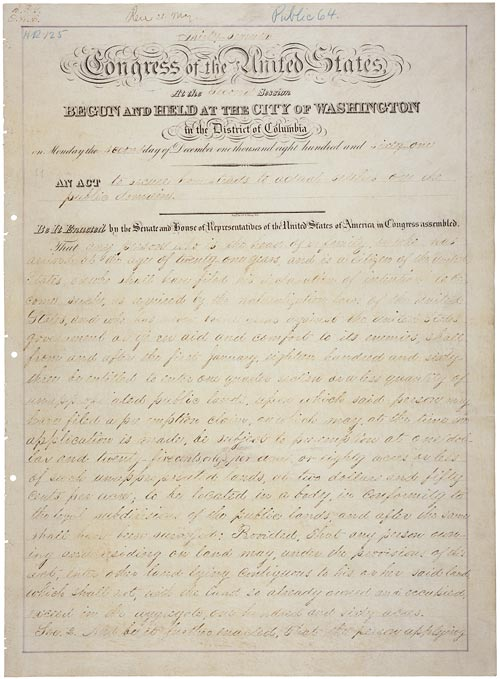 Public 64.
HR 125
Congress of the United States,
At the second Session
BEGUN AND HELD AT THE CITY OF WASHINGTON
in the District of Columbia
on Monday the second day of December one thousand eight hundred and sixty-one
AN ACT to secure homesteads to actual settlers on the
public domain.
Be It Enacted by the Senate and House of Representatives of the United States of America in Congress assembled.
That any person who is the head of a family, or who has
arrived at the age of twenty one years and is a citizen of the United
States, or who shall have filed his declaration of intention to be-
come such, as required by the naturalization laws of the United
States, and who has never borne arms against the United States
government or given aid and comfort to its enemies, shall
from and after the first January, eighteen hundred and sixty
three be entitled to enter one quarter section or a less quantity of
unappropriated public lands, upon which said person may
have filed a preemption claim, or which may, at the time the
application is made, be subject to preemption at one dol-
lar and twenty-five cents, or less, per acre, or eighty acres or less
of such unappropriated lands, at two dollars and fifty
cents per acre, to be located in a body, in conformity to
the legal subdivisions of the public lands, and after the same
shall have been surveyed: Provided, That any person own-
ing and residing on land may, under the provisions of this
act, enter other land lying contiguous to his or her said land
which shall not, with the land so already owned and occupied,
exceed in the aggregate, one hundred and sixty acres.
Sec. 2. And be it further enacted, That the person applying